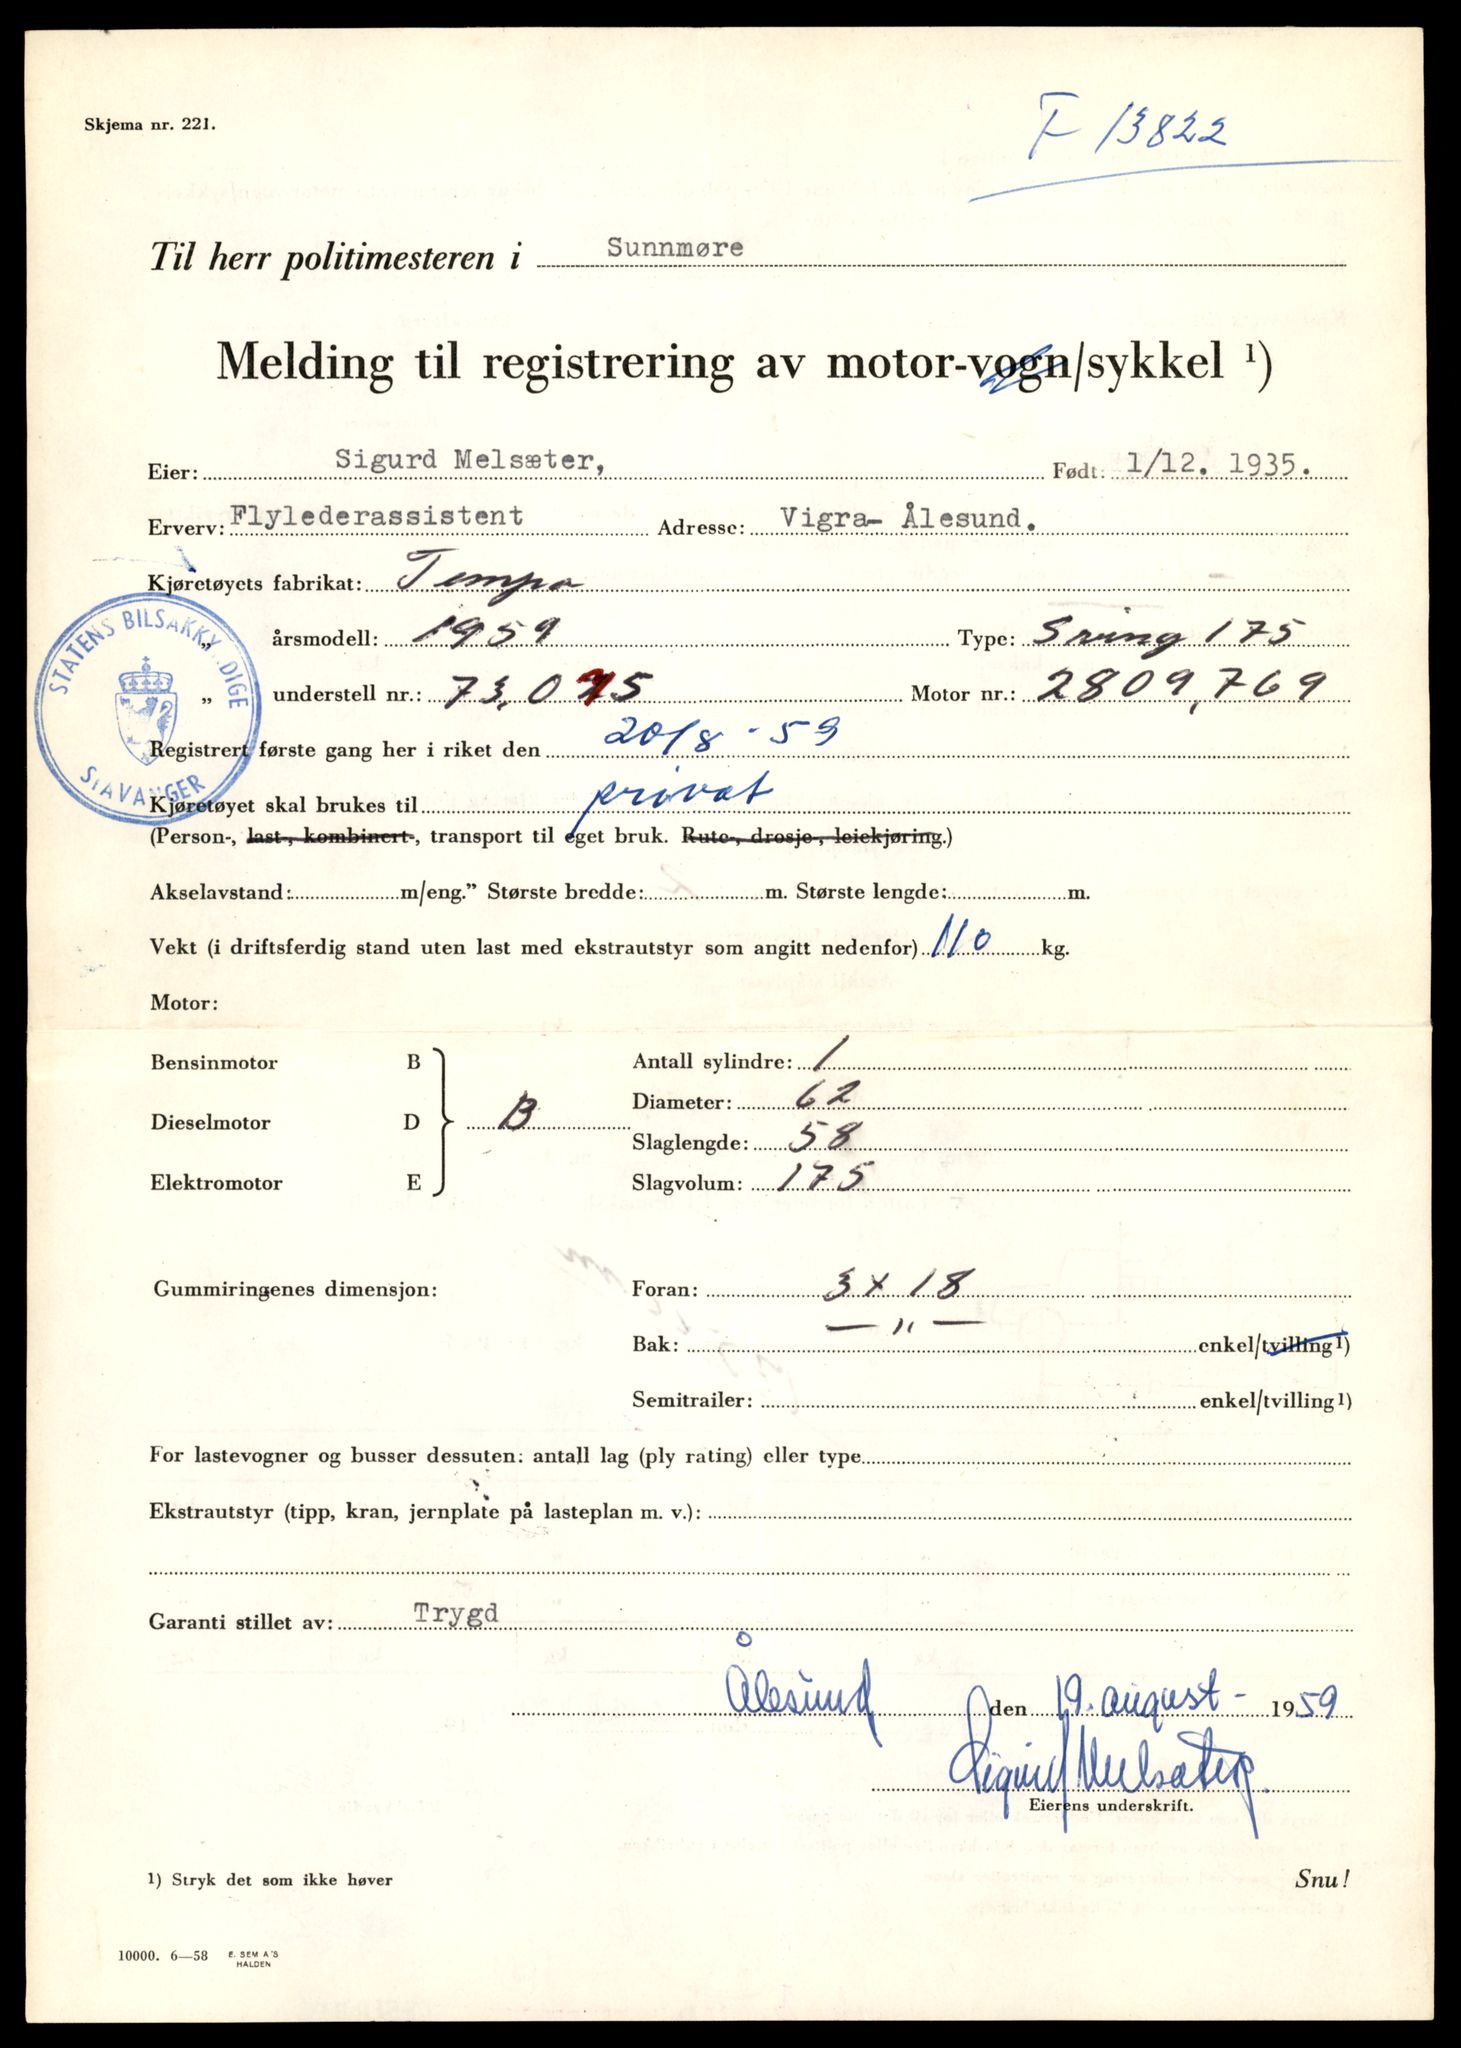 Skjema nr. 221.
F 13822
Til herr politimesteren i Sunnmøre
Melding til registrering av motor-vogn/sykkel ¹)
Eier: Sigurd Melsæter, Født: 1/12. 1935.
Erverv: Flylederassistent Adresse: Vigra- Ålesund.
Kjøretøyets fabrikat: Tempo
„ årsmodell: 1959 Type: Swing 175
„ understell nr.: Motor nr.: 2809,769
STATENS BILSAKKYNDIGE
STAVANGER
Registrert første gang her i riket den 20/8 - 59
Kjøretøyet skal brukes til privat
(Person-, last-, kombinert-, transport til eget bruk. Rute-, drosje-, leiekjøring.)
Akselavstand: m/eng.” Største bredde: m. Største lengde: m.
Vekt (i driftsferdig stand uten last med ekstrautstyr som angitt nedenfor) 110 kg.
Motor:
Bensinmotor B Antall sylindre: 1
Diameter: 62
Dieselmotor D B
Slaglengde: 58
Elektromotor E Slagvolum: 175
Gummiringenes dimensjon: Foran: 3 x 18
Bak: — „ — enkel/tvilling¹)
Semitrailer: enkel/tvilling¹)
For lastevogner og busser dessuten: antall lag (ply rating) eller type
Ekstrautstyr (tipp, kran, jernplate på lasteplan m. v.):
Garanti stillet av: Trygd
Ålesund den 19. august - 1959
Sigurd Melsæter.
Eierens underskrift.
¹) Stryk det som ikke høver
Snu!
10000. 6—58 E. SEM A'S
HALDEN